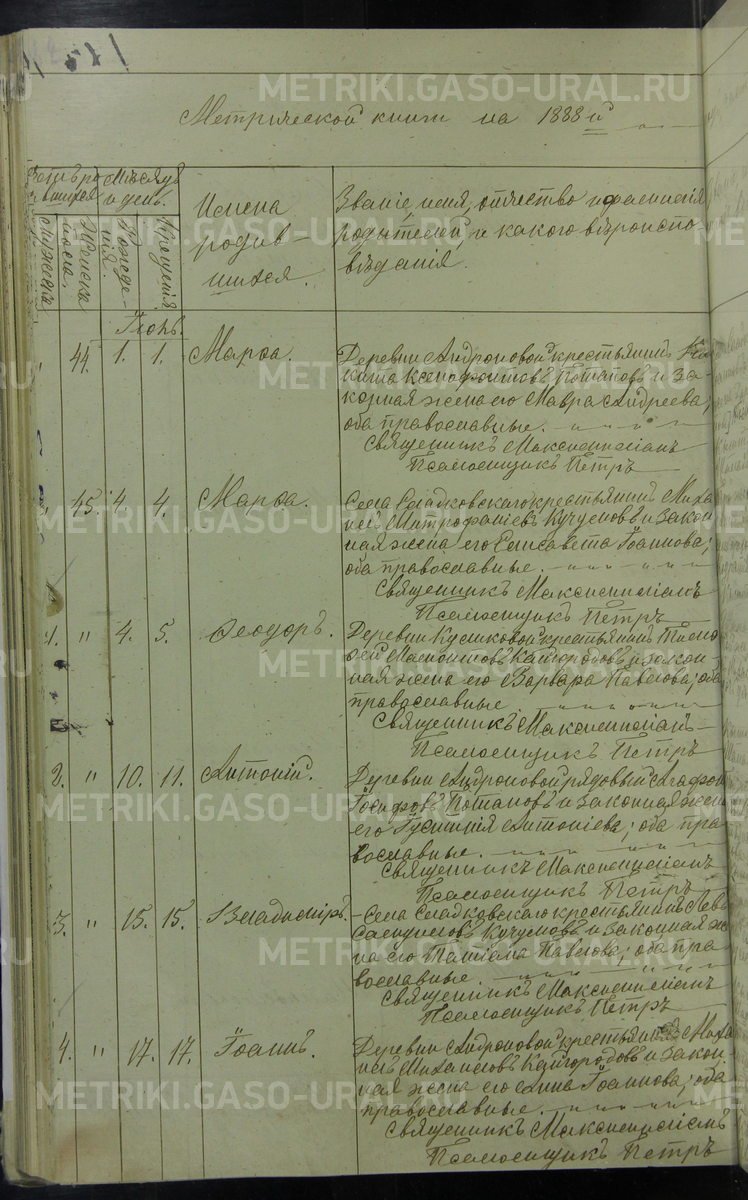 Метрической книги на 1888й
Счетъ родившихся
Мѣсяцъ и день.
Мужска
Женска пола.
Рожденія.
Крещенія.
Имена родив-
шихся.
Званіе, имя, отчество и фамилія
родителей, и какого вѣроиспо-
вѣданія.
Іюнь.
44. 1. 1. Марѳа.
Деревни Андроновой крестьянинъ Ни-
кита Ксенофонтовъ Потаповъ и за-
конная жена его Мавра Андреева;
оба православные.
Священникъ Максимиліанъ
Псаломщикъ Петръ
45. 4. 4. Марѳа.
Села Сладковскаго крестьянинъ Миха
илъ Митрофаніевъ Кучумовъ и закон
ная жена его Елисавета Іоаннова;
оба православные.
Священникъ Максимиліанъ
Псаломщикъ Петръ
1. " 4. 5. Ѳеодоръ.
Деревни Куликовой крестьянинъ Тимо
ѳей Кайгородовъ и закон
ная жена его Варвара Павлова; оба
православные
Священникъ Максимиліанъ
Псаломщикъ Петръ
2. " 10. 11. Антоній.
Деревни Андроновой рядовый Агафон
Іосифовъ Потаповъ и законная жен
его Антоніева; оба пра
вославные.
Священникъ Максимиліанъ
Псаломщикъ Петръ
3. " 15. 15. Владиміръ.
Села Сладковскаго крестьянинъ Лев
Самуиловъ Кучумовъ и законная же
на его Татіана Павлова; оба пра
вославные.
Священникъ Максимиліанъ
Псаломщикъ Петръ
4. " 17. 17. Іоаннъ.
Деревни Андроновой крестьянинъ Миха
илъ Михаиловъ Кайгородовъ и закон
ная жена его Анна Іоаннова; оба
православные.
Священникъ Максимиліанъ
Псаломщикъ Петръ
METRIKI.GASO-URAL.RU